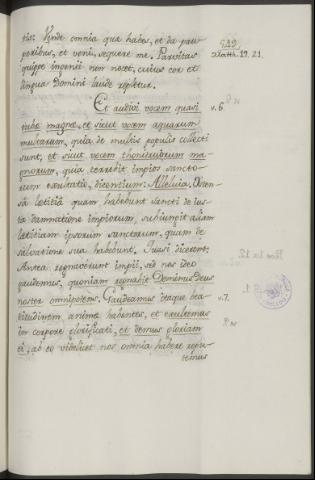 tio: Vende omnia quæ habes, et da pau-
peribus, et veni, sequere me. Parvitas
quippe ingenii non nocet, cuius cor et
lingua Domini laude repletur.
Et audivi vocem quasi
tubæ magnæ, et sicut vocem aquarum
multarum, quia de multis populis collecti
sunt, et sicut vocem thonitruorum ma-
gnorum, quia terrebit impios sancto-
rum exultatio, dicentium: Alleluia.
lætitia quam habebunt sancti de ius-
ta damnatione impiorum, subiungit aliam
lætitiam ipsorum sanctorum, quam de
salvatione sua habebunt. Quasi dicerent:
Antea regnaverunt impii, sed nos ideo
gaudemus, quoniam regnabit Dominus Deus
noster omnipotens. Gaudeamus itaque bea-
titudinem animæ habentes, et exultemus
in corpore glorificati, et demus gloriam
ei, ab eo videlicet nos omnia habere repu-
temus
539.
Matth. 19. 21.
v. 6
v. 7.